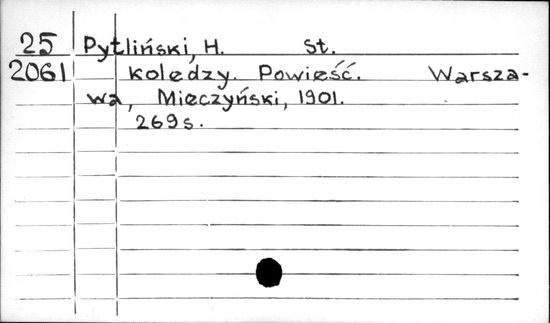 25 Pytliński, H. St.
2061 Koledzy. Powieść. Warsza-
wa, Mieczyński, 1901.
269 s.